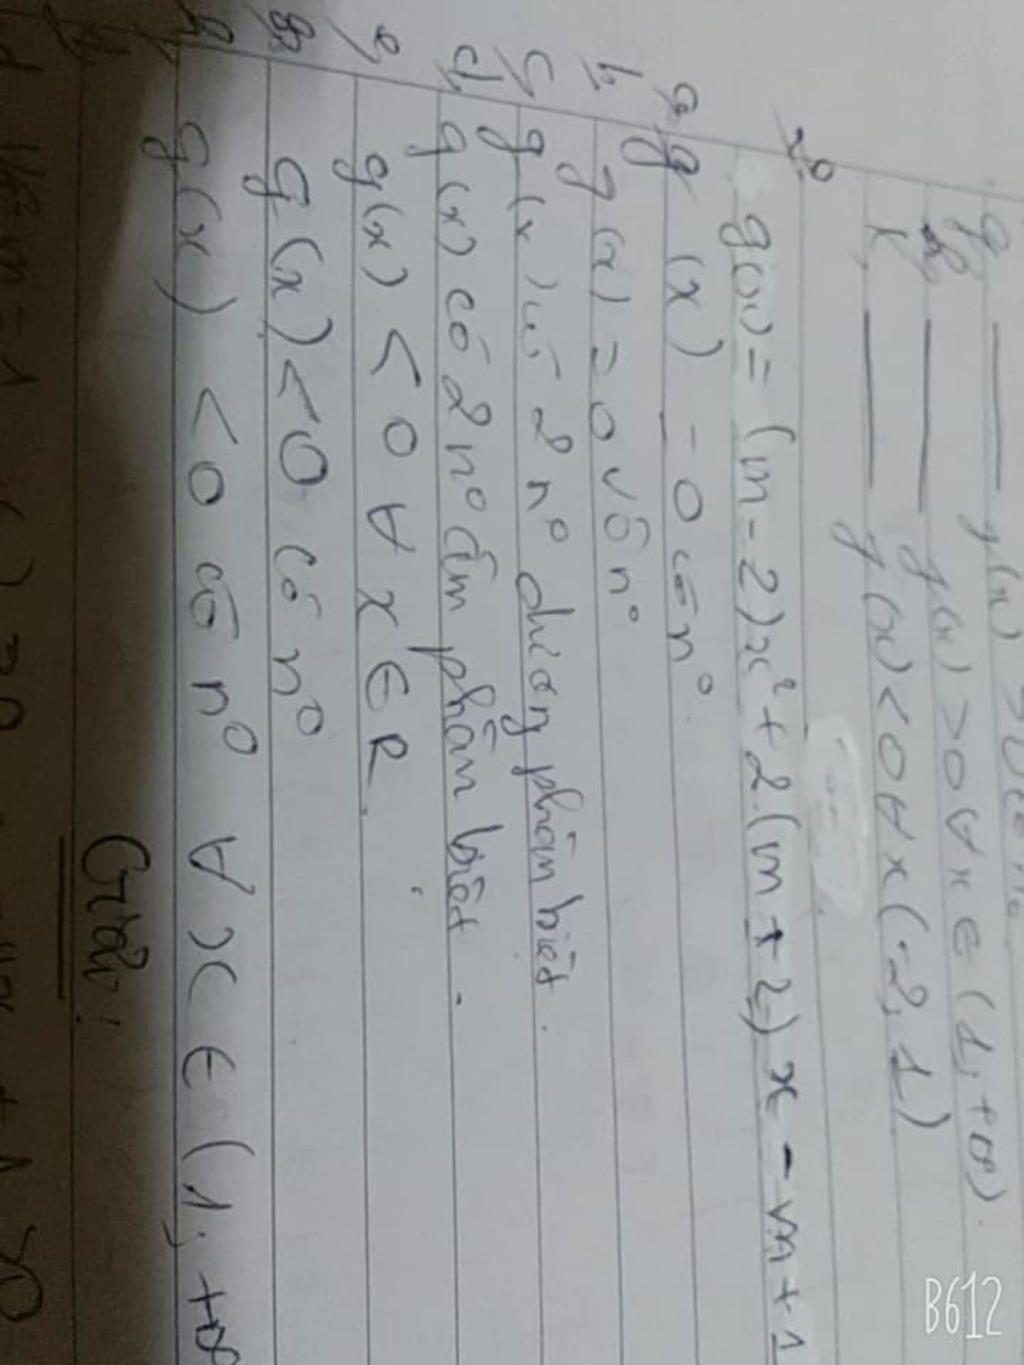 g(x) > 0
g(x) > 0 ∀ x ∈ (1; +∞).
k, g(x) < 0 ∀ x (-2; 1)
g(x) = (m - 2)x² + 2.(m + 2)x - m + 1
a, g(x) = 0 có n⁰.
b, g(x) = 0 vô n⁰
c, g(x) có 2 n⁰ dương phân biệt.
d, g(x) có 2 n⁰ âm phân biệt.
e, g(x) < 0 ∀ x ∈ R.
g(x) < 0 có n⁰
g(x) < 0 có n⁰ ∀ x ∈ (1; +∞
Giải:
B612